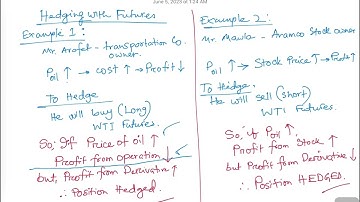 June 5, 2023 at 1:24 AM
Hedging with Futures
Example 1:
Mr. Arafat - transportation Co.
owner.
P oil ↑ → cost ↑ → Profit ↓
To Hedge
He will buy (Long)
WTI Futures.
So, if Price of oil ↑
Profit from operation ↓
but, Profit from Derivative ↑
∴ Position Hedged.
Example 2:
Mr. Mawla - Aramco Stock owner
P oil ↑ → Stock Price ↑ → Profit ↑
To Hedge.
He will sell (short)
WTI Futures.
So, if P oil ↑
Profit from Stock ↑
but Profit from Derivative ↓
∴ Position HEDGED.